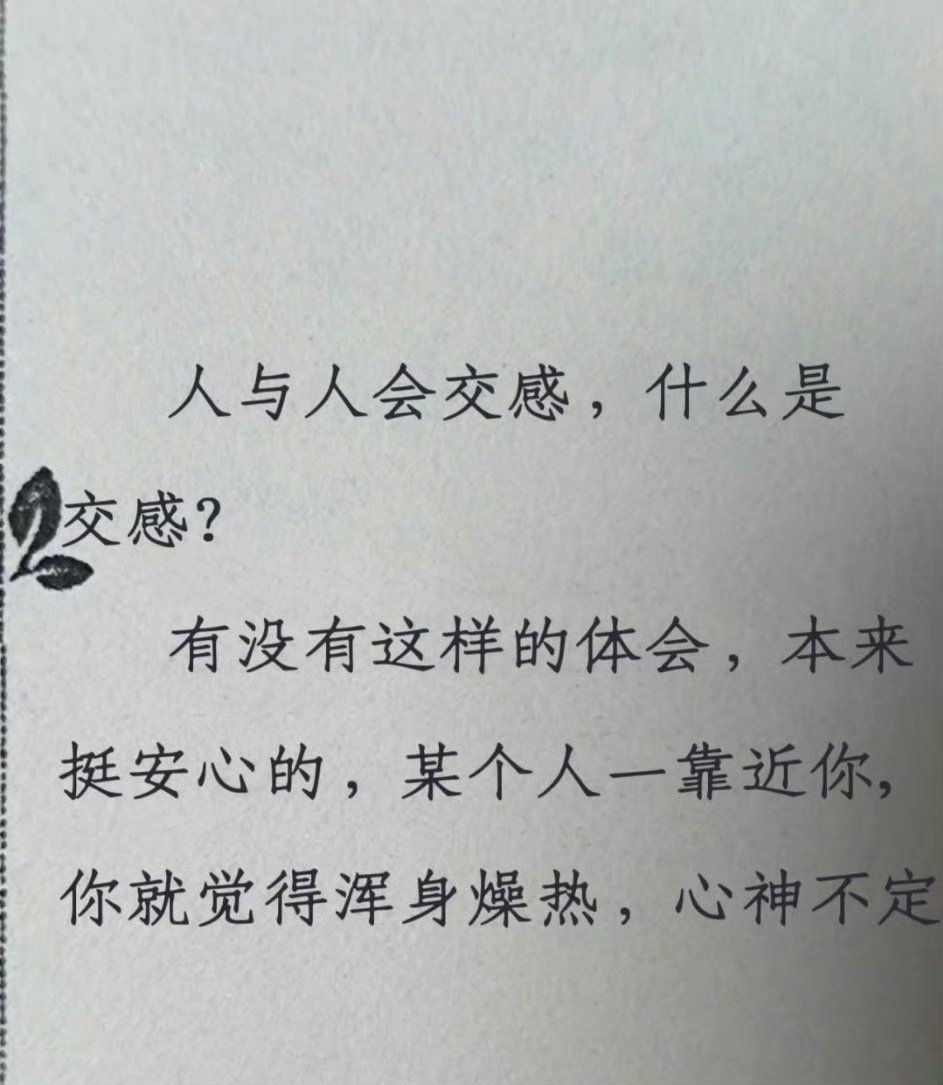 人与人会交感，什么是
交感？
有没有这样的体会，本来
挺安心的，某个人一靠近你，
你就觉得浑身燥热，心神不定